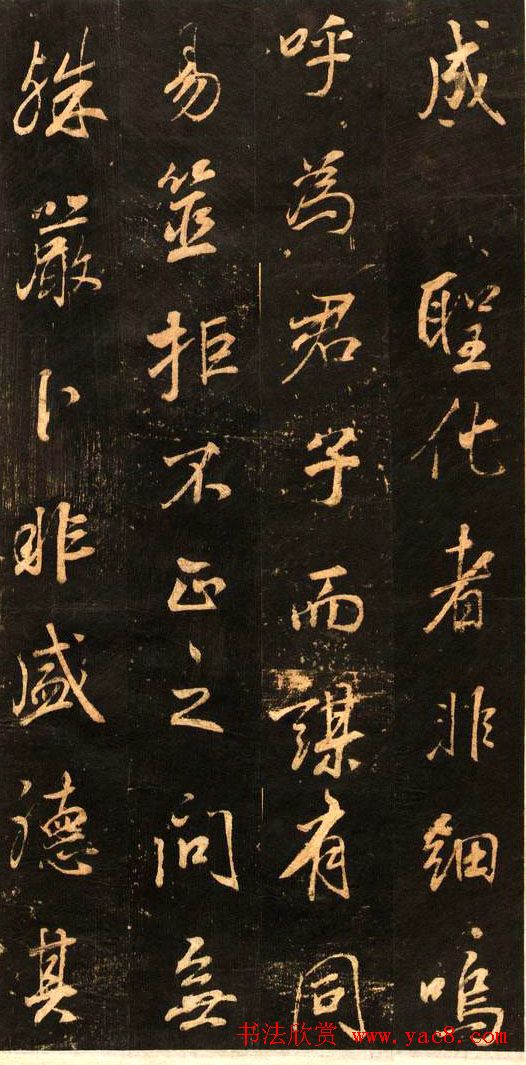 成聖化者非細嗚
呼為君子而謀有同
易筮拒不正之問無
殊嚴卜非盛德其
书法欣赏 www.yac8.com